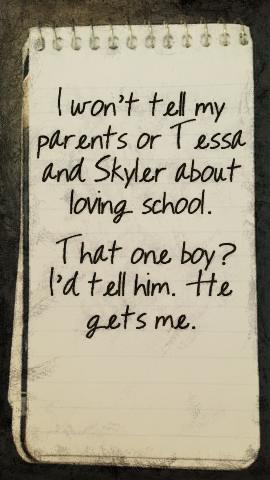 I won't tell my
parents or Tessa
and Skyler about
loving school.
That one boy?
I'd tell him. He
gets me.